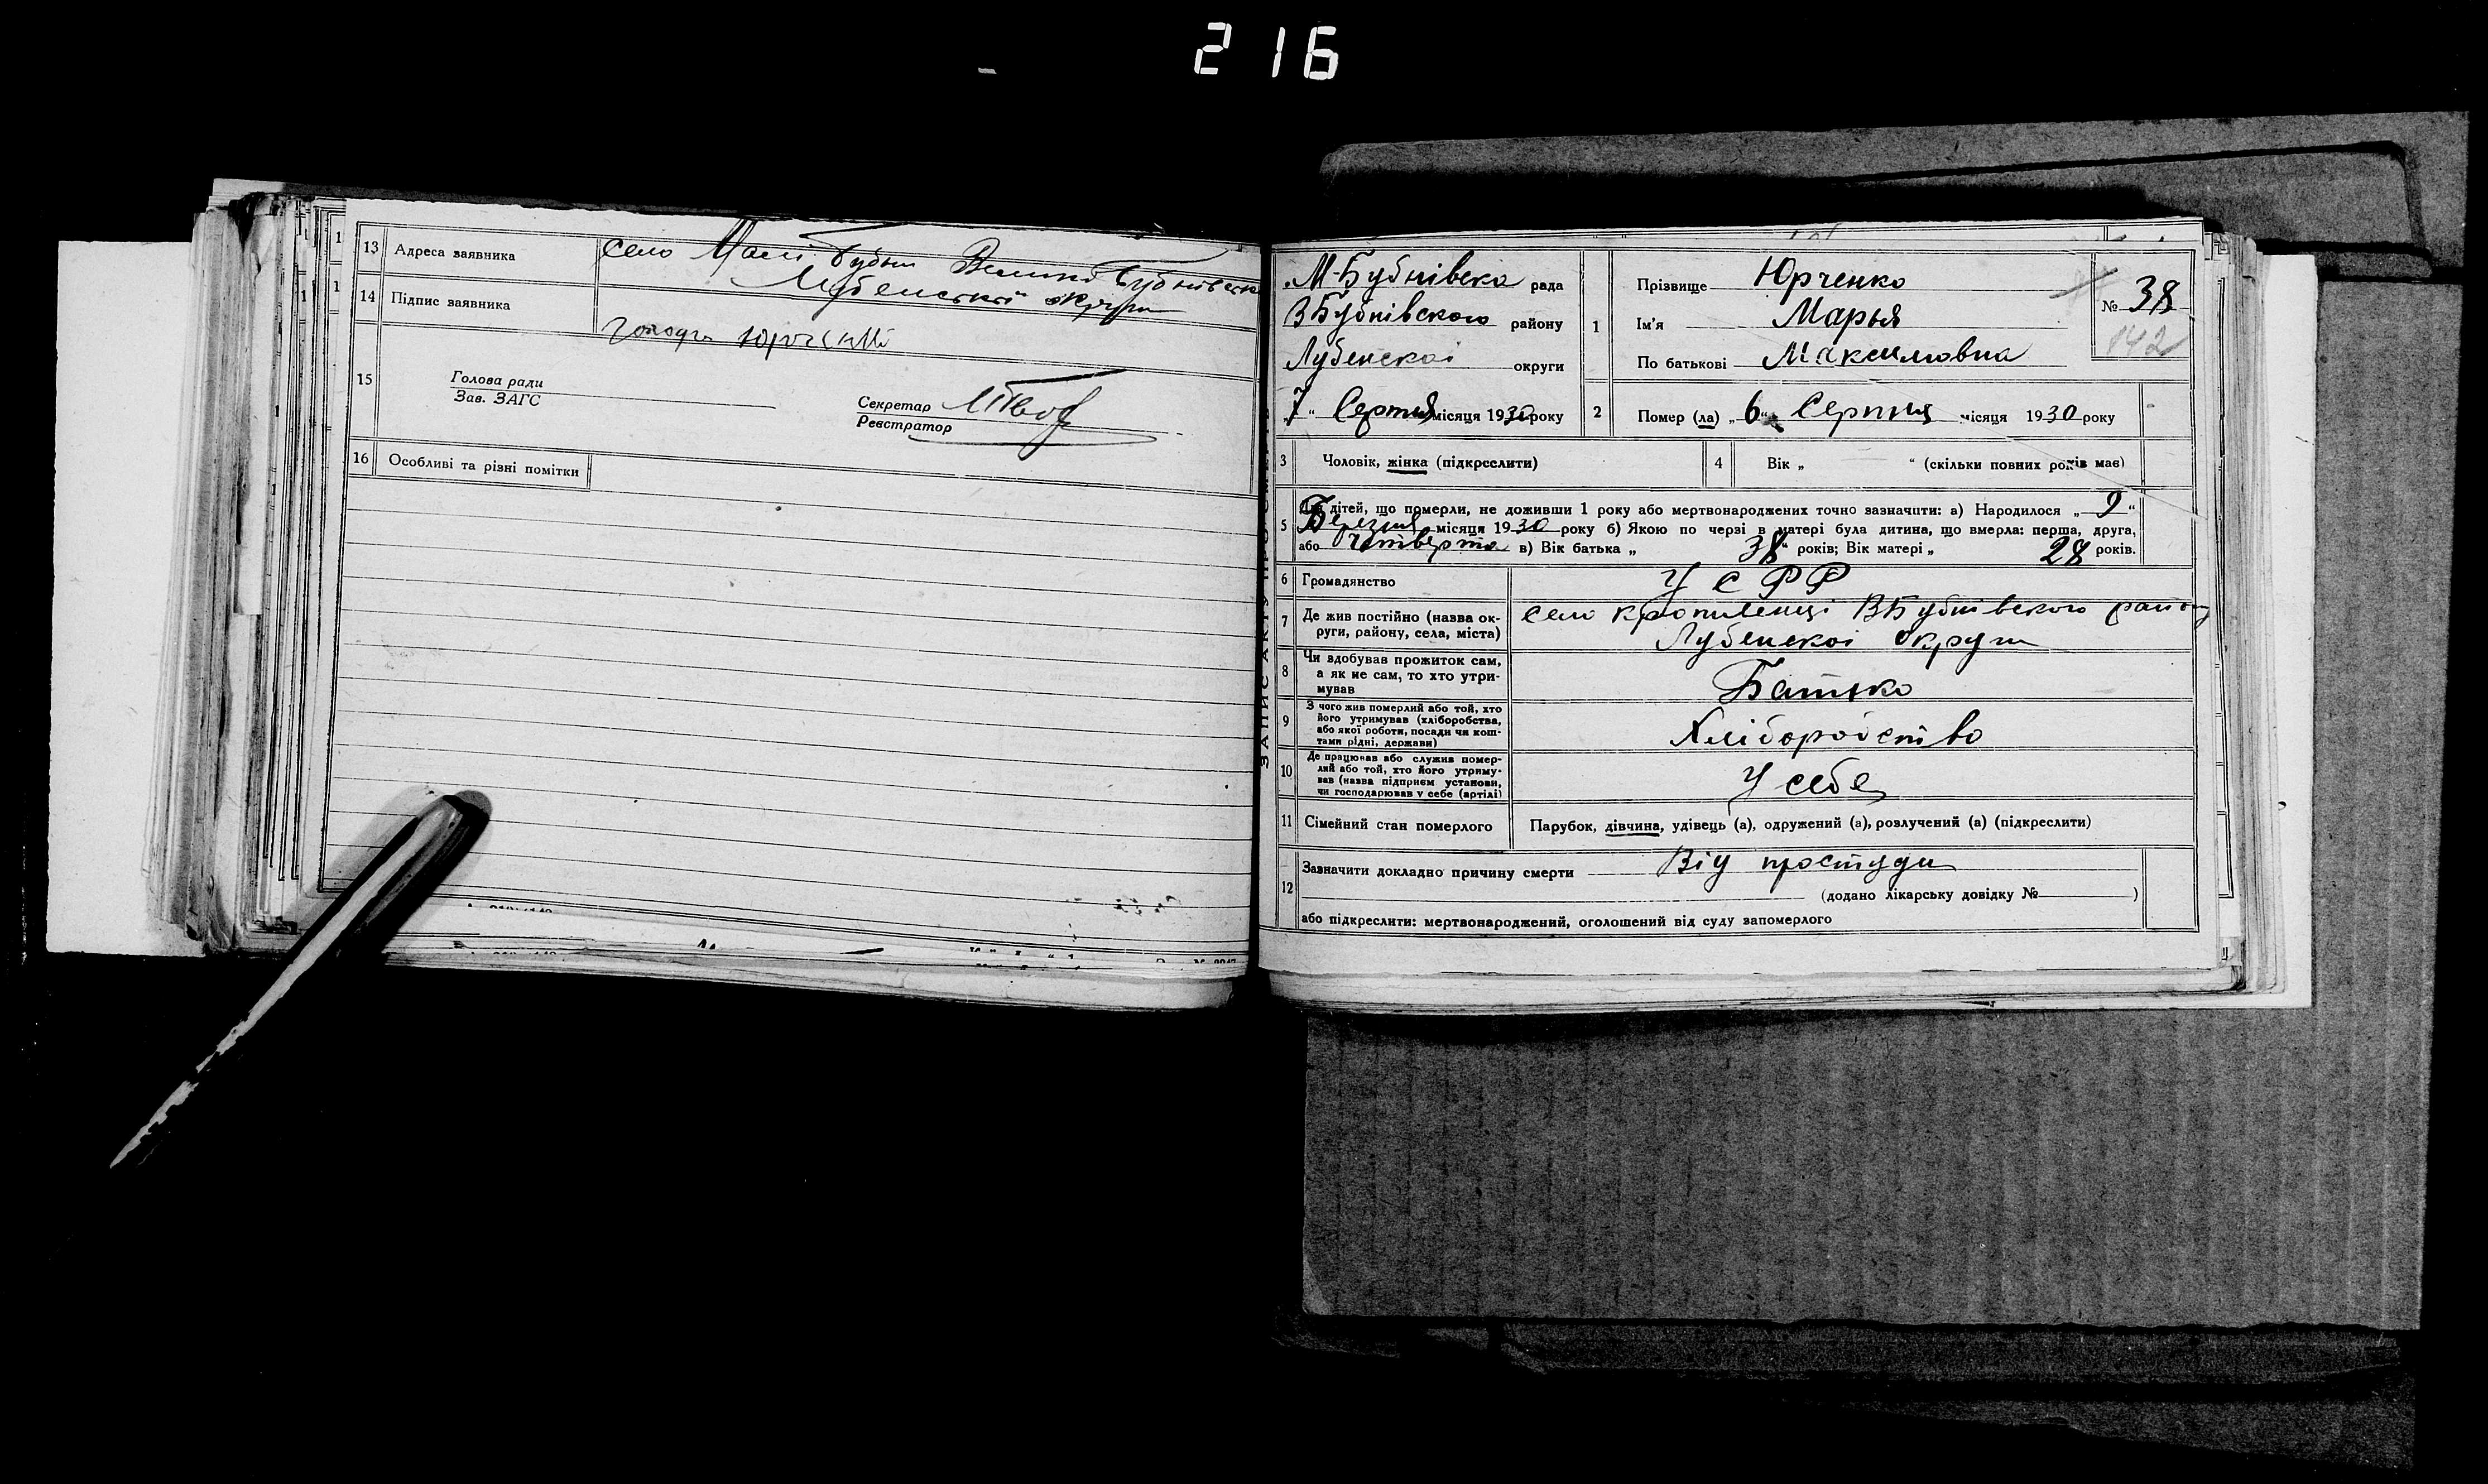 216
13 Адреса заявника село Малі Бубни Велико Бубнівськ
Лубенської округи
14 Підпис заявника
Юрченко
15 Голова ради
Зав. ЗАГС
Секретар
Реєстратор
16 Особливі та різні помітки
ЗАПИС АКТУ ПРО СМЕРТЬ
М-Бубнівека рада
ВБубнівского району
Лубенскоі округи
"7" Серпня місяця 1930 року
1 Прізвище Юрченко
Ім'я Марья
По батькові Максимовна
№ 38
142
2 Помер (ла) „6" Серпня місяця 1930 року
3 Чоловік, жінка (підкреслити)
4 Вік „ " (скільки повних років має)
5 Для дітей, що померли, не доживши 1 року або мертвонароджених точно зазначити: а) Народилося „9"
Березня місяця 1930 року б) Якою по черзі в матері була дитина, що вмерла: перша, друга,
або Четверта в) Вік батька „38" років; Вік матері „28 років.
6 Громадянство УСРР
7 Де жив постійно (назва округи, району, села, міста) село Кропивенці ВБубнівского району
Лубенскоі округи
8 Чи здобував прожиток сам,
а як не сам, то хто утри-
мував Батько
9 З чого жив померлий або той, хто
його утримував (хліборобства,
або якої роботи, посади чи кош-
тами рідні, держави) Хліборобство
10 Де працював або служив помер-
лий або той, хто його утриму-
вав (назва підприєм установи,
чи господарював у себе (артілі) У себе
11 Сімейний стан померлого Парубок, дівчина, удівець (а), одружений (а), розлучений (а) (підкреслити)
12 Зазначити докладно причину смерти Від простуди
(додано лікарську довідку № )
або підкреслити: мертвонароджений, оголошений від суду запомерлого